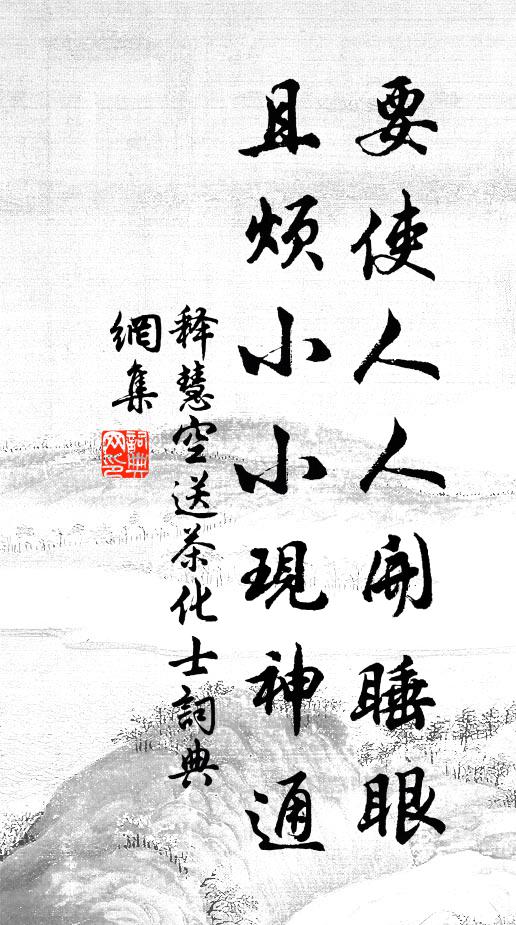 要使人人開睡眼
且煩小小現神通
释慧空送茶化士詞典
網集
詞典
网印